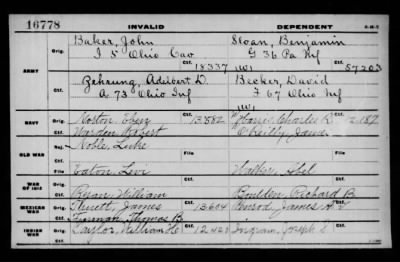 16778 INVALID DEPENDENT
Baker, John Sloan, Benjamin
Orig. I 5 Ohio Cav Orig. G 36 Pa Inf
Ctf. 18337 W1 Ctf. 87203
ARMY
Zehrung, Adelbert D. Becker, David
A 73 Ohio Inf F 67 Ohio Inf
W1
NAVY Orig. Eben 13882 Harris, Charles R 2182
Ctf. Worden, Robert O'Reilly, James
Reg. Noble, Luke
OLD WAR
File Eaton, Levi File Walker, Abel
WAR OF 1812
Ryan, William Boulden, Richard B.
MEXICAN WAR Orig. James 13604 James A
Ctf. Thomas B.
INDIAN WAR Orig. Taylor, William H 12420 Ingram, Joseph
Ctf. Ctf.